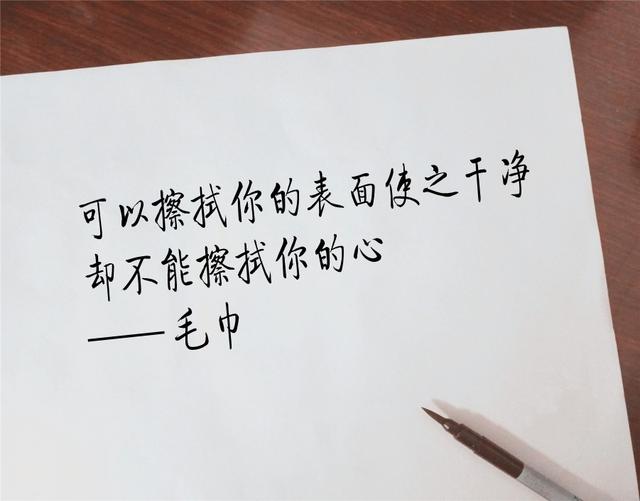 可以擦拭你的表面使之干净
却不能擦拭你的心
——毛巾